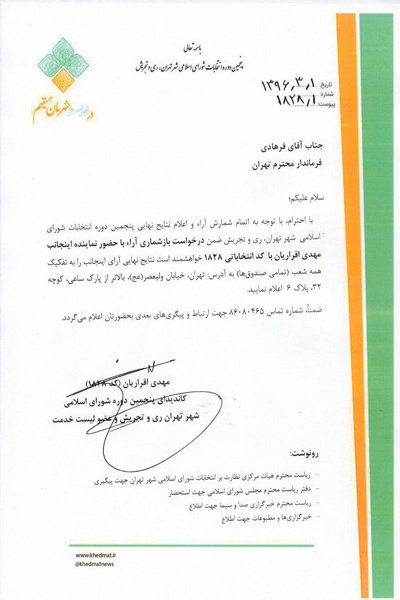 باسمه تعالی
پنجمین دوره انتخابات شورای اسلامی شهر تهران، ری و تجریش
در خدمت شهرمان هستیم
تاریخ: ۱۳۹۶,۳,۱
شماره: ۱۸۲۸/۱
پیوست:
جناب آقای فرهادی
فرماندار محترم تهران
سلام علیکم؛
با احترام، با توجه به اتمام شمارش آراء و اعلام نتایج نهایی پنجمین دوره انتخابات شورای
اسلامی شهر تهران، ری و تجریش ضمن درخواست بازشماری آراء با حضور نماینده اینجانب
مهدی اقراریان با کد انتخاباتی ۱۸۲۸ خواهشمند است نتایج نهایی آرای اینجانب را به تفکیک
همه شعب (تمامی صندوق‌ها) به آدرس: تهران، خیابان ولیعصر(عج)، بالاتر از پارک ساعی، کوچه
۳۲، پلاک ۶ اعلام نمایید.
ضمناً، شماره تماس ۸۶۰۸۰۴۶۵ جهت ارتباط و پیگیری‌های بعدی بحضورتان اعلام می‌گردد.
مهدی اقراریان (کد ۱۸۲۸)
کاندیدای پنجمین دوره شورای اسلامی
شهر تهران ری و تجریش و عضو لیست خدمت
رونوشت:
- ریاست محترم هیات مرکزی نظارت بر انتخابات شورای اسلامی شهر تهران جهت پیگیری
- دفتر ریاست محترم مجلس شورای اسلامی جهت استحضار
- ریاست محترم خبرگزاری صدا و سیما جهت اطلاع
- خبرگزاری‌ها و مطبوعات جهت اطلاع
www.khedmat.ir
@khedmatnews